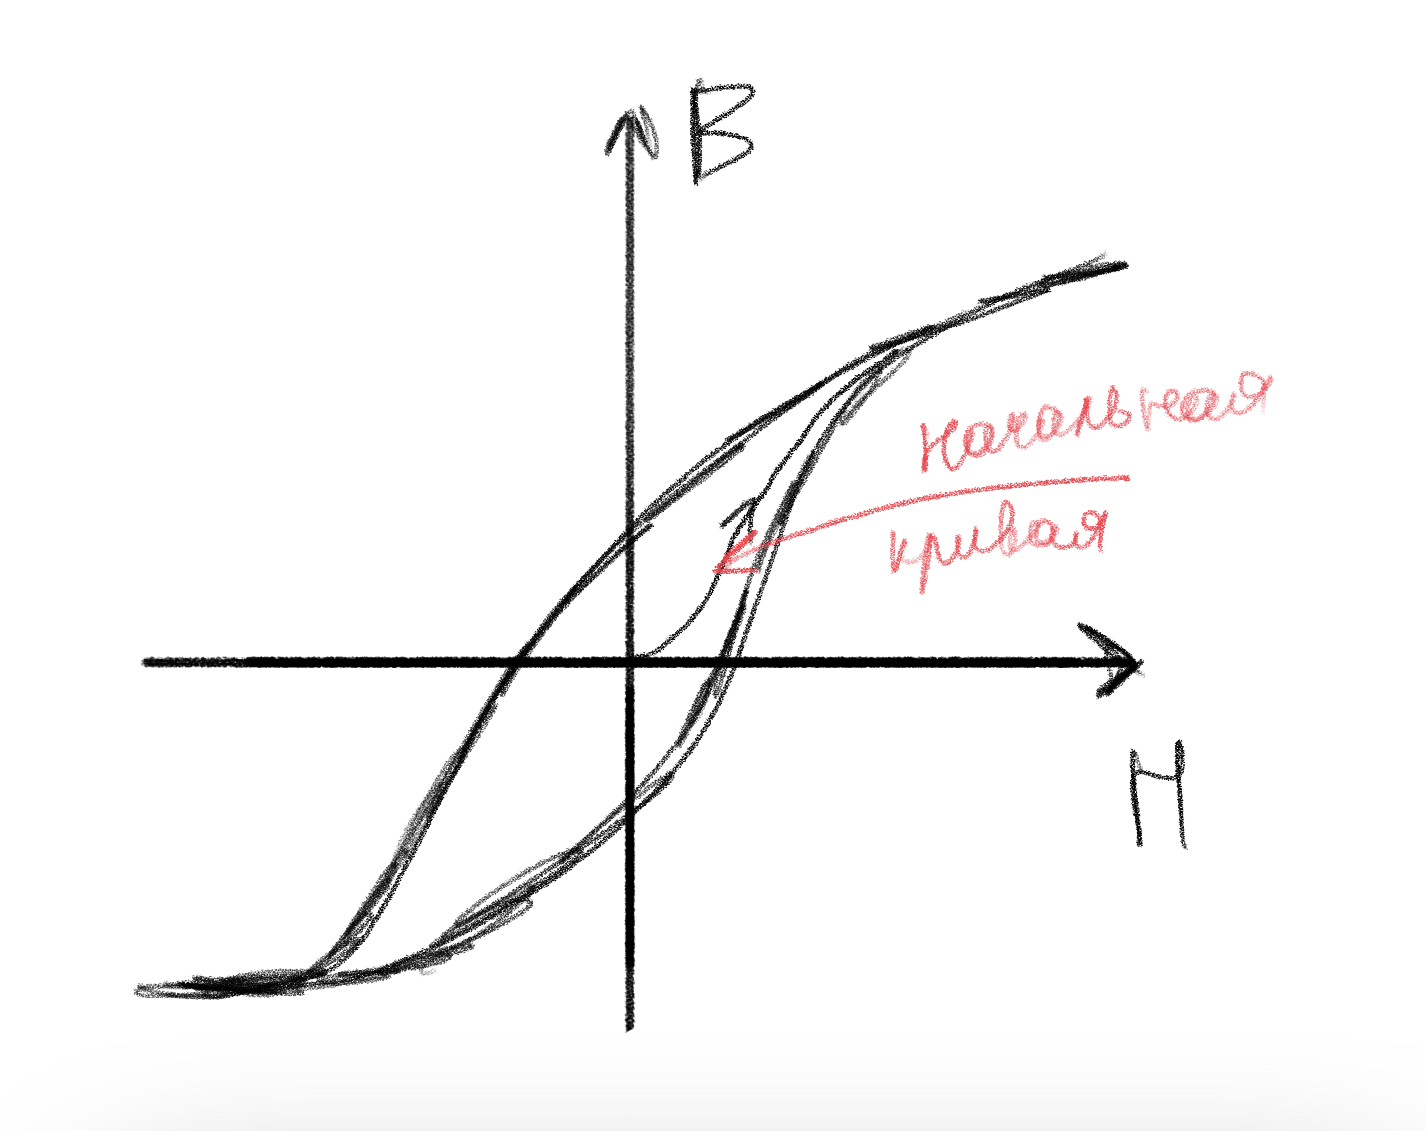 B
начальная
кривая
H